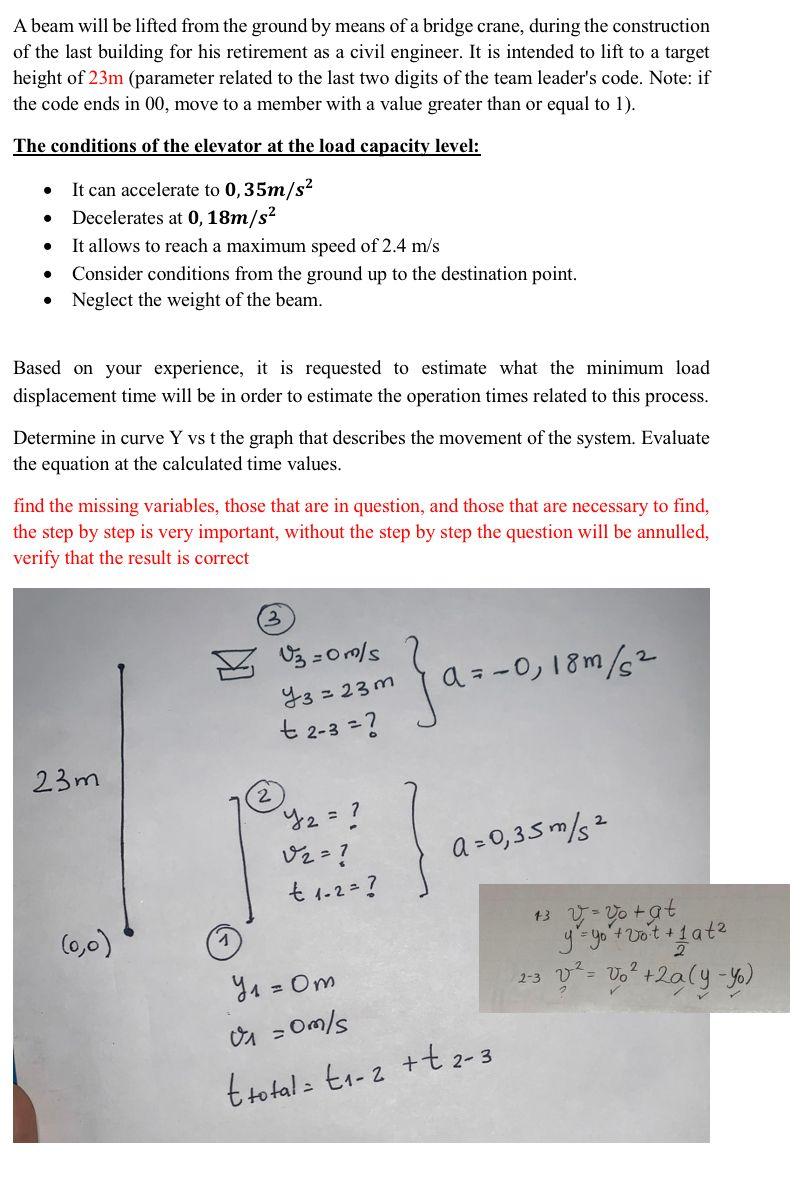 A beam will be lifted from the ground by means of a bridge crane, during the construction
of the last building for his retirement as a civil engineer. It is intended to lift to a target
height of 23m (parameter related to the last two digits of the team leader's code. Note: if
the code ends in 00, move to a member with a value greater than or equal to 1).
The conditions of the elevator at the load capacity level:
• It can accelerate to 0,35m/s²
• Decelerates at 0,18m/s²
• It allows to reach a maximum speed of 2.4 m/s
• Consider conditions from the ground up to the destination point.
• Neglect the weight of the beam.
Based on your experience, it is requested to estimate what the minimum load
displacement time will be in order to estimate the operation times related to this process.
Determine in curve Y vs t the graph that describes the movement of the system. Evaluate
the equation at the calculated time values.
find the missing variables, those that are in question, and those that are necessary to find,
the step by step is very important, without the step by step the question will be annulled,
verify that the result is correct
3
v3 = 0 m/s
y3 = 23 m
t 2-3 = ?
a = -0,18 m/s²
23m
2
y2 = ?
v2 = ?
t 1-2 = ?
a = 0,35 m/s²
(0,0)
1
y1 = 0m
v1 = 0m/s
t total = t1-2 + t 2-3
1-3 v = v0 + at
y = y0 + v0·t + 1/2 at²
2-3 v² = v0² + 2a(y - y0)
?